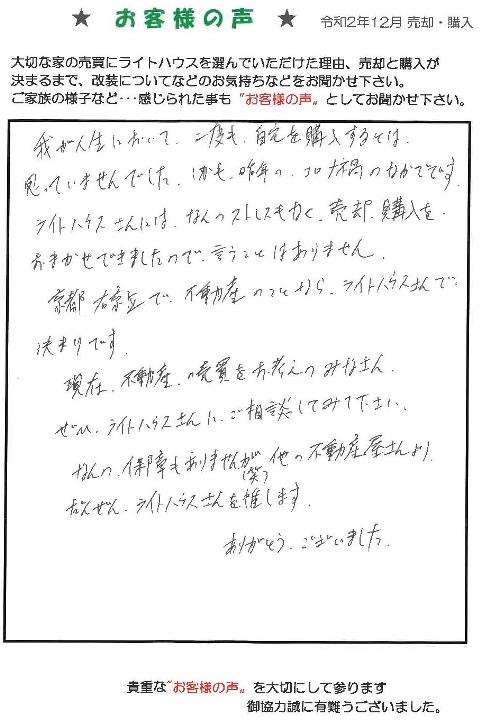 ★ お客様の声 ★ 令和2年12月 売却・購入
大切な家の売買にライトハウスを選んでいただけた理由、売却と購入が
決まるまで、改装についてなどのお気持ちなどをお聞かせ下さい。
ご家族の様子など・・・感じられた事も "お客様の声" としてお聞かせ下さい。
我が人生において、二度も、自宅を購入するとは、
思っていませんでした。しかも、昨年の、コロナ禍のなかでです。
ライトハウスさんには、なんのストレスもなく、売却、購入を
おまかせできましたので、言うことはありません。
京都 右京区で、不動産のことなら、ライトハウスさんで
決まりです。
現在、不動産、の売買をお考えのみなさん、
ぜひ、ライトハウスさんに、ご相談してみて下さい。
なんの、保障もありませんが(笑)他の不動産屋さんより、
だんぜん、ライトハウスさんを推します。
ありがとう、ございました。
貴重な"お客様の声" を大切にして参ります
御協力誠に有難うございました。